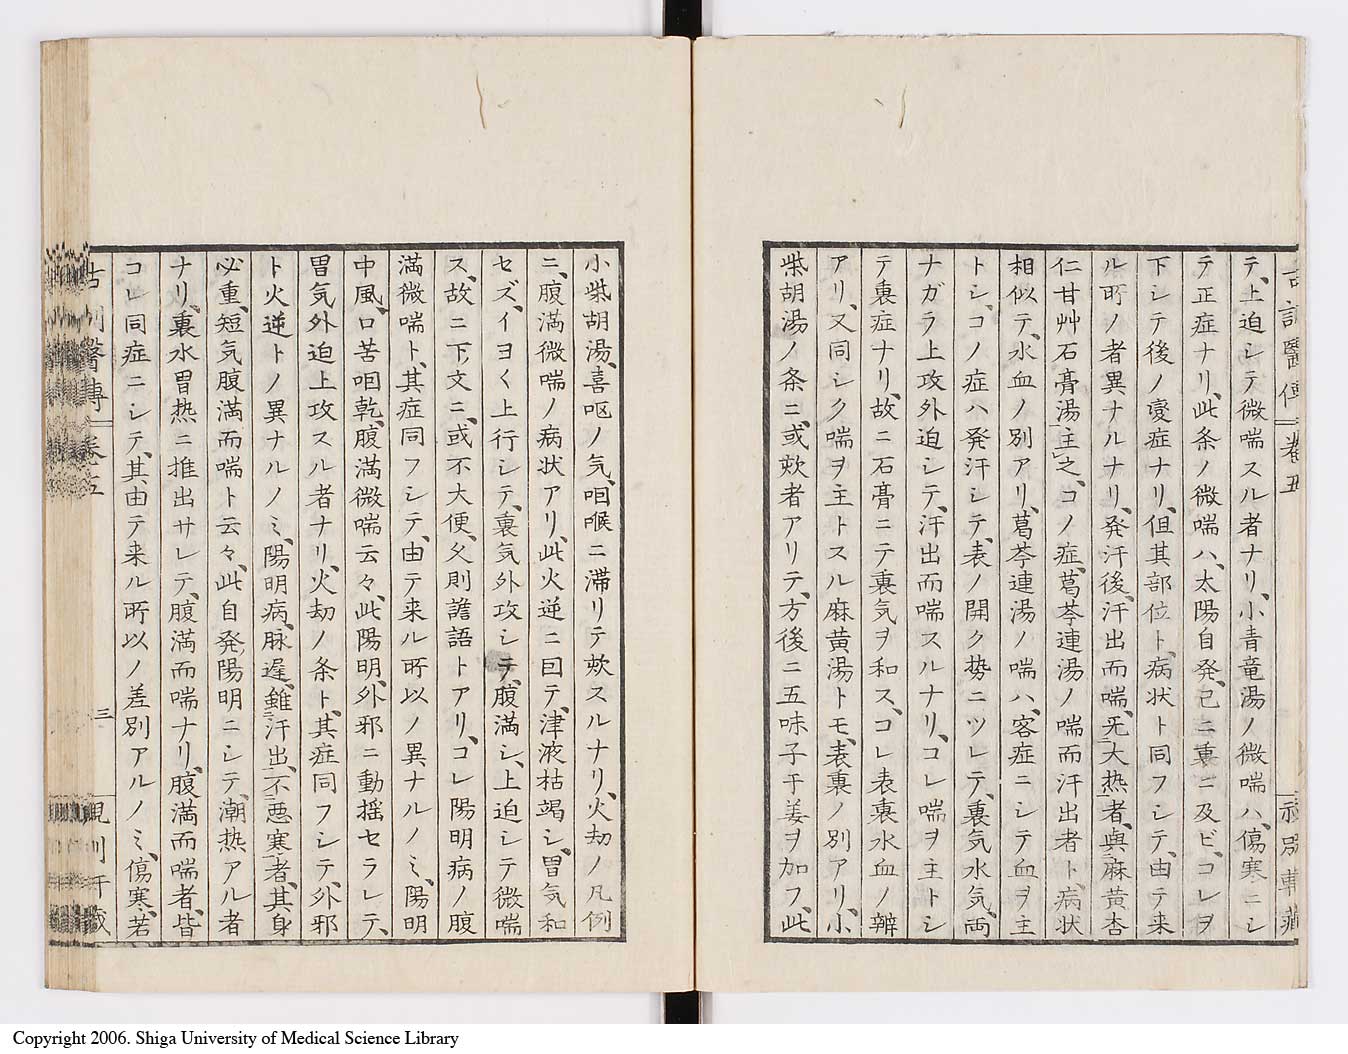 古訓醫傳 卷五
テ、上迫シテ微喘スル者ナリ、小青竜湯ノ微喘ハ、傷寒ニシ
テ正症ナリ、此条ノ微喘ハ、太陽自発、已ニ裏ニ及ビ、コレヲ
下シテ後ノ変症ナリ、但其部位ト、病状ト同フシテ、由テ来
ル所ノ者異ナルナリ、発汗後、汗出而喘、旡大热者、與麻黄杏
仁甘艸石膏湯主之、コノ症、葛芩連湯ノ喘而汗出者ト、病状
相似テ、水血ノ別アリ、葛芩連湯ノ喘ハ、客症ニシテ血ヲ主
トシ、コノ症ハ発汗シテ、表ノ開ク势ニツレテ、裏気水気両
ナガラ上攻外迫シテ、汗出而喘スルナリ、コレ喘ヲ主トシ
テ裏症ナリ、故ニ石膏ニテ裏気ヲ和ス、コレ表裏水血ノ辨
アリ、又同シク喘ヲ主トスル麻黄湯トモ、表裏ノ別アリ、小
柴胡湯ノ条ニ、或欬者アリテ、方後ニ五味子干姜ヲ加フ、此
小柴胡湯、喜呕ノ気、咽喉ニ滞リテ欬スルナリ、火劫ノ凡例
ニ、腹満微喘ノ病状アリ、此火逆ニ因テ、津液枯竭シ、胃気和
セズ、イヨく上行シテ、裏気外攻シテ、腹満シ、上迫シテ微喘
ス、故ニ下文ニ、或不大便、久則譫語トアリ、コレ陽明病ノ腹
満微喘ト、其症同フシテ、由テ来ル所以ノ異ナルノミ、陽明
中風、口苦咽乾、腹満微喘云々、此陽明、外邪ニ動揺セラレテ、
胃気外迫上攻スル者ナリ、火劫ノ条ト、其症同フシテ、外邪
ト火逆トノ異ナルノミ、陽明病、脉遅、雖汗出、不悪寒者、其身
必重、短気腹満而喘ト云々、此自発陽明ニシテ、潮热アル者
ナリ、裏水胃热ニ推出サレテ、腹満而喘ナリ、腹満而喘者、皆
コレ同症ニシテ、其由テ来ル所以ノ差別アルノミ、傷寒、若
古訓醫傳 卷五
三